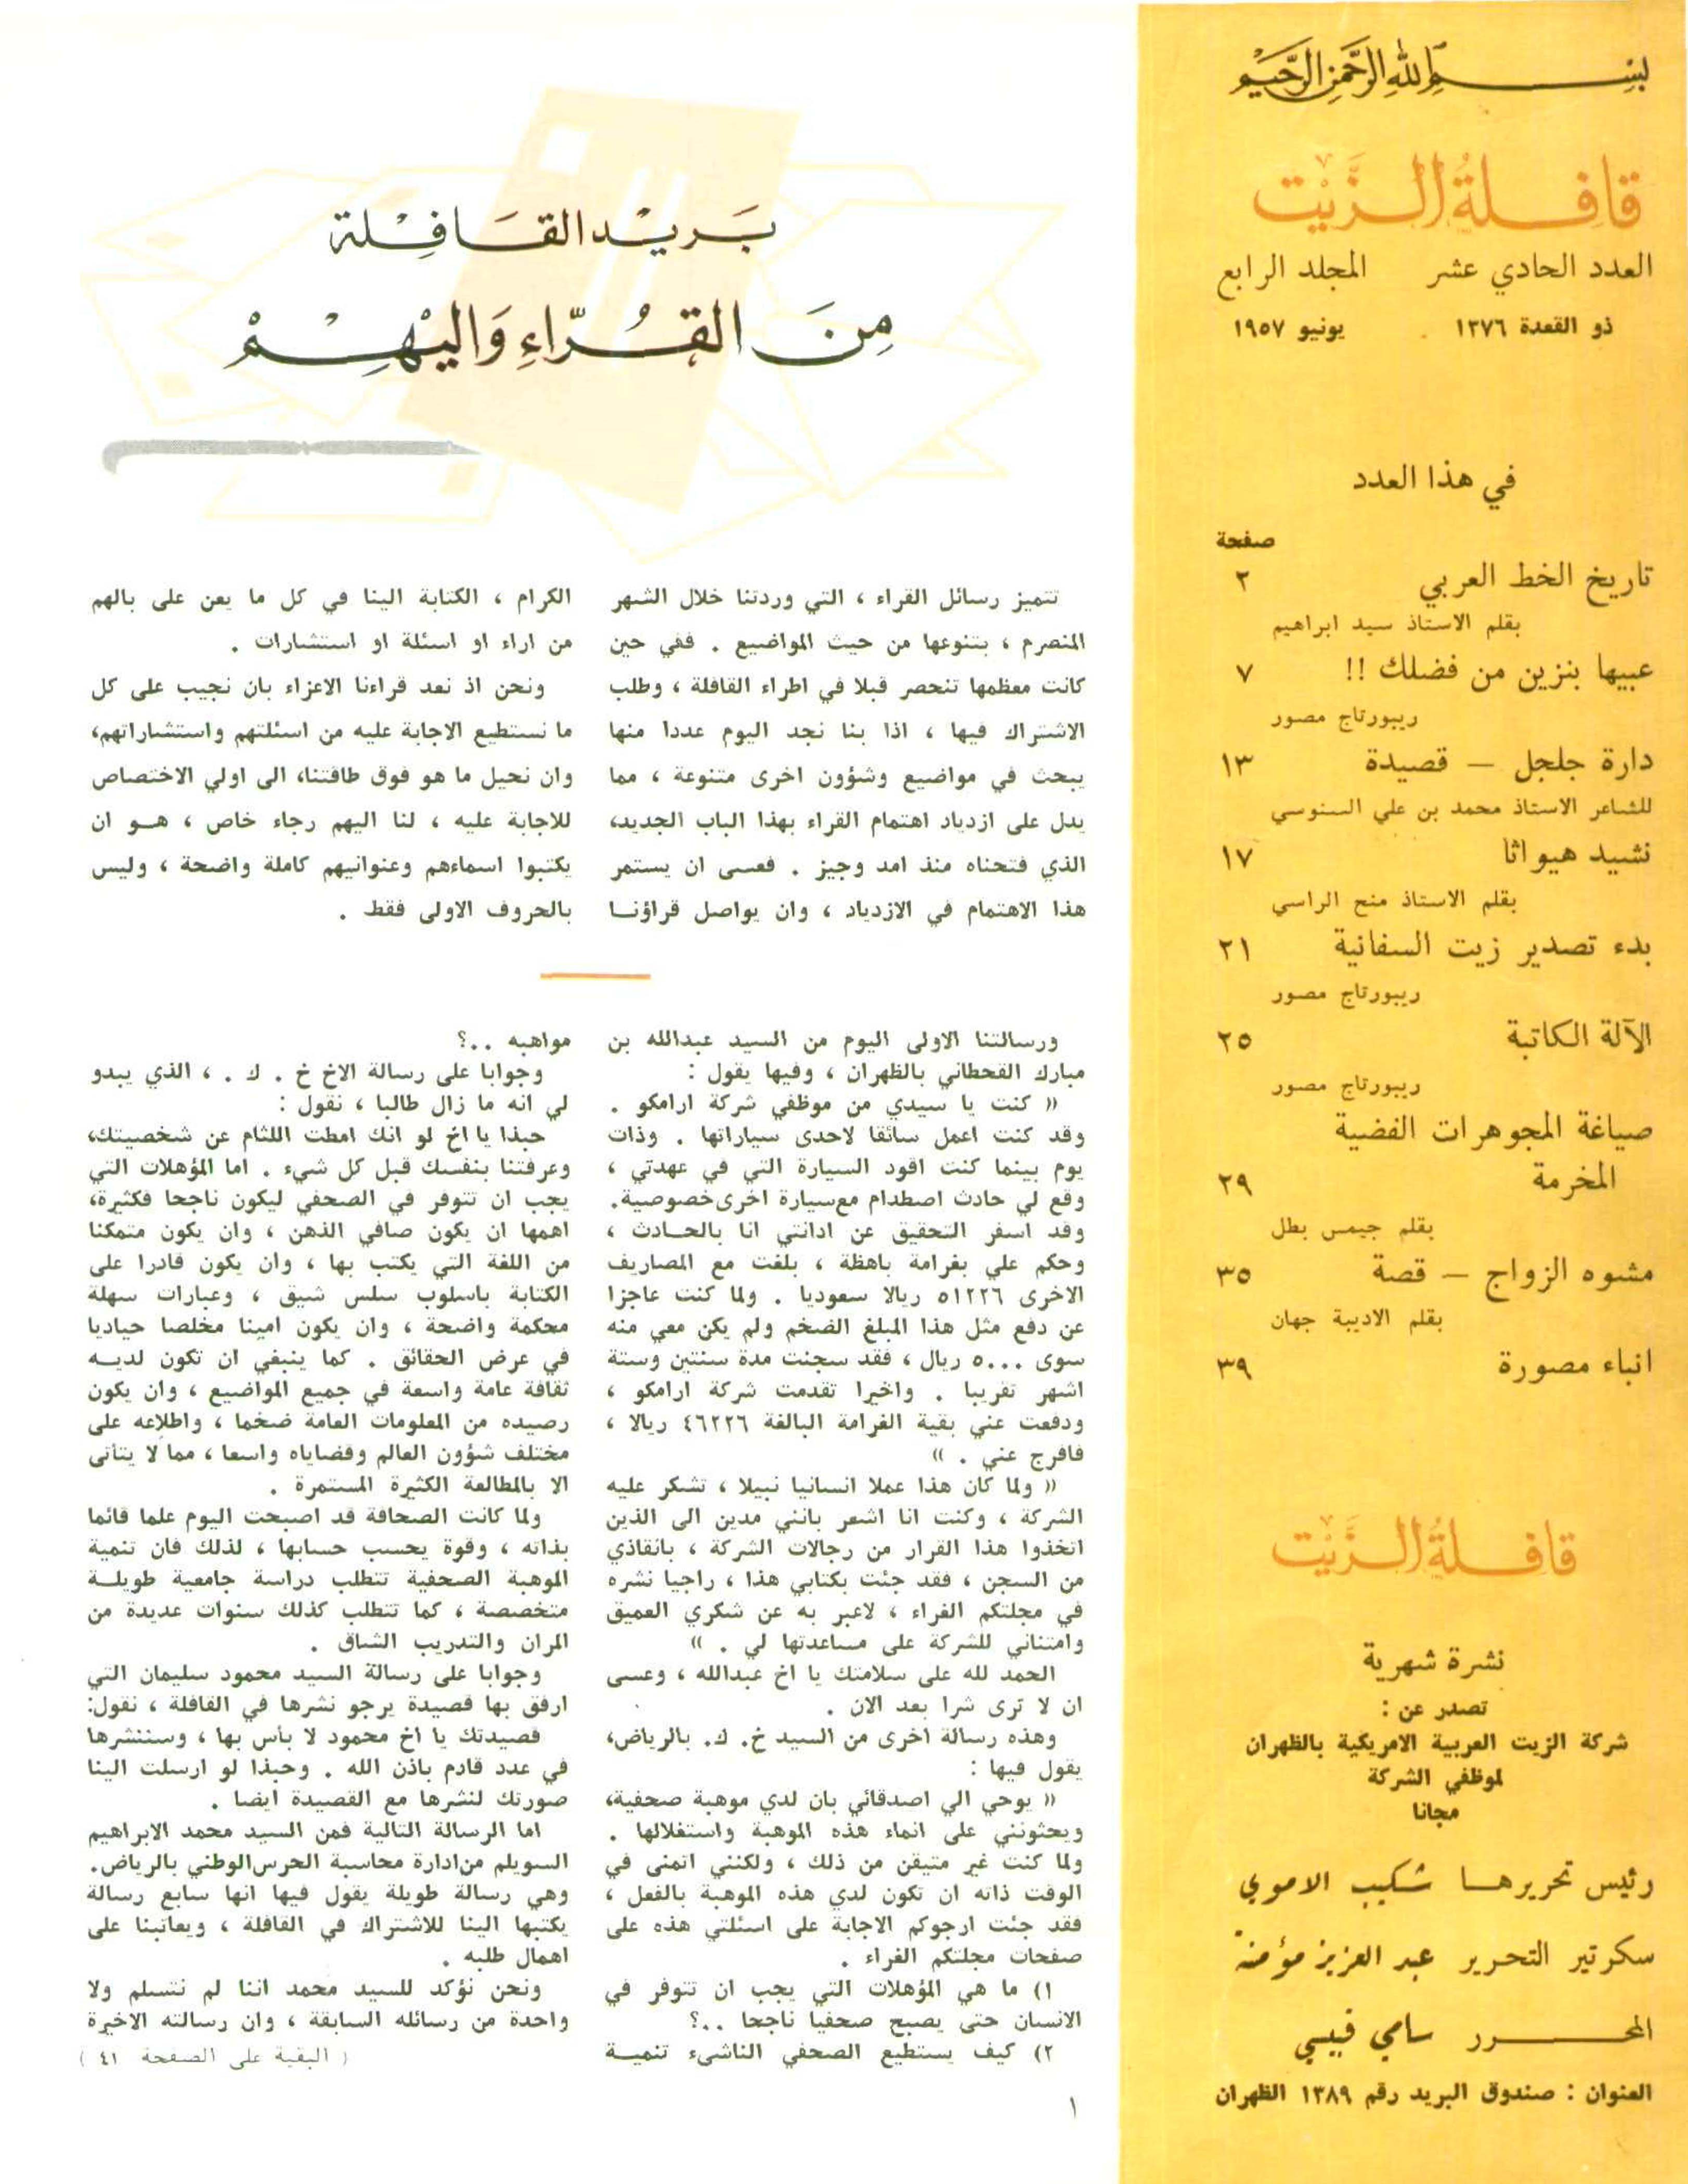 بسم الله الرحمن الرحيم
قافلة الزيت
العدد الحادي عشر المجلد الرابع
ذو القعدة ١٣٧٦ يونيو ١٩٥٧
في هذا العدد
صفحة
تاريخ الخط العربي ٢
بقلم الاستاذ سيد ابراهيم
عبيها بنزين من فضلك !! ٧
ريبورتاج مصور
دارة جلجل — قصيدة ١٣
للشاعر الاستاذ محمد بن علي السنوسي
نشيد هيواثا ١٧
بقلم الاستاذ منح الراسي
بدء تصدير زيت السفانية ٢١
ريبورتاج مصور
الآلة الكاتبة ٢٥
ريبورتاج مصور
صياغة المجوهرات الفضية
المخرمة ٢٩
بقلم جيمس بطل
مشوه الزواج — قصة ٣٥
بقلم الاديبة جهان
انباء مصورة ٣٩
قافلة الزيت
نشرة شهرية
تصدر عن :
شركة الزيت العربية الامريكية بالظهران
لموظفي الشركة
مجانا
رئيس تحريرها شكيب الاموي
سكرتير التحرير عبد العزيز مؤمنة
المحرر سامي قبيسي
العنوان : صندوق البريد رقم ١٣٨٩ الظهران
بريد القافلة
من القراء واليهم
تتميز رسائل القراء ، التي وردتنا خلال الشهر
المنصرم ، بتنوعها من حيث المواضيع . ففي حين
كانت معظمها تنحصر قبلا في اطراء القافلة ، وطلب
الاشتراك فيها ، اذا بنا نجد اليوم عددا منها
يبحث في مواضيع وشؤون اخرى متنوعة ، مما
يدل على ازدياد اهتمام القراء بهذا الباب الجديد،
الذي فتحناه منذ امد وجيز . فعسى ان يستمر
هذا الاهتمام في الازدياد ، وان يواصل قراؤنا
الكرام ، الكتابة الينا في كل ما يعن على بالهم
من اراء او اسئلة او استشارات .
ونحن اذ نعد قراءنا الاعزاء بان نجيب على كل
ما نستطيع الاجابة عليه من اسئلتهم واستشاراتهم،
وان نحيل ما هو فوق طاقتنا، الى اولي الاختصاص
للاجابة عليه ، لنا اليهم رجاء خاص ، هو ان
يكتبوا اسماءهم وعنوانيهم كاملة واضحة ، وليس
بالحروف الاولى فقط .
ورسالتنا الاولى اليوم من السيد عبدالله بن
مبارك القحطاني بالظهران ، وفيها يقول :
« كنت يا سيدي من موظفي شركة ارامكو .
وقد كنت اعمل سائقا لاحدى سياراتها . وذات
يوم بينما كنت اقود السيارة التي في عهدتي ،
وقع لي حادث اصطدام مع سيارة اخرى خصوصية.
وقد اسفر التحقيق عن ادانتي انا بالحادث ،
وحكم علي بغرامة باهظة ، بلغت مع المصاريف
الاخرى ٥١٢٢٦ ريالا سعوديا . ولما كنت عاجزا
عن دفع مثل هذا المبلغ الضخم ولم يكن معي منه
سوى ٥٠٠٠ ريال ، فقد سجنت مدة سنتين وستة
اشهر تقريبا . واخيرا تقدمت شركة ارامكو ،
ودفعت عني بقية الغرامة البالغة ٤٦٢٢٦ ريالا ،
فافرج عني . »
« ولما كان هذا عملا انسانيا نبيلا ، تشكر عليه
الشركة ، وكنت انا اشعر بانني مدين الى الذين
اتخذوا هذا القرار من رجالات الشركة ، بانقاذي
من السجن ، فقد جئت بكتابي هذا ، راجيا نشره
في مجلتكم الغراء ، لاعبر به عن شكري العميق
وامتناني للشركة على مساعدتها لي . »
الحمد لله على سلامتك يا اخ عبدالله ، وعسى
ان لا ترى شرا بعد الان .
وهذه رسالة اخرى من السيد خ. ك. بالرياض،
يقول فيها :
« يوحي الي اصدقائي بان لدي موهبة صحفية،
ويحثونني على انماء هذه الموهبة واستغلالها .
ولما كنت غير متيقن من ذلك ، ولكنني اتمنى في
الوقت ذاته ان تكون لدي هذه الموهبة بالفعل ،
فقد جئت ارجوكم الاجابة على اسئلتي هذه على
صفحات مجلتكم الغراء .
١) ما هي المؤهلات التي يجب ان تتوفر في
الانسان حتى يصبح صحفيا ناجحا ..؟
٢) كيف يستطيع الصحفي الناشىء تنمية
مواهبه ..؟
وجوابا على رسالة الاخ خ . ك . ، الذي يبدو
لي انه ما زال طالبا ، نقول :
حبذا يا اخ لو انك امطت اللثام عن شخصيتك،
وعرفتنا بنفسك قبل كل شيء . اما المؤهلات التي
يجب ان تتوفر في الصحفي ليكون ناجحا فكثيرة،
اهمها ان يكون صافي الذهن ، وان يكون متمكنا
من اللغة التي يكتب بها ، وان يكون قادرا على
الكتابة باسلوب سلس شيق ، وعبارات سهلة
محكمة واضحة ، وان يكون امينا مخلصا حياديا
في عرض الحقائق . كما ينبغي ان تكون لديه
ثقافة عامة واسعة في جميع المواضيع ، وان يكون
رصيده من المعلومات العامة ضخما ، واطلاعه على
مختلف شؤون العالم وقضاياه واسعا ، مما لا يتأتى
الا بالمطالعة الكثيرة المستمرة .
ولما كانت الصحافة قد اصبحت اليوم علما قائما
بذاته ، وقوة يحسب حسابها ، لذلك فان تنمية
الموهبة الصحفية تتطلب دراسة جامعية طويلة
متخصصة ، كما تتطلب كذلك سنوات عديدة من
المران والتدريب الشاق .
وجوابا على رسالة السيد محمود سليمان التي
ارفق بها قصيدة يرجو نشرها في القافلة ، نقول:
قصيدتك يا اخ محمود لا بأس بها ، وسننشرها
في عدد قادم باذن الله . وحبذا لو ارسلت الينا
صورتك لنشرها مع القصيدة ايضا .
اما الرسالة التالية فمن السيد محمد الابراهيم
السويلم من ادارة محاسبة الحرس الوطني بالرياض.
وهي رسالة طويلة يقول فيها انها سابع رسالة
يكتبها الينا للاشتراك في القافلة ، ويعاتبنا على
اهمال طلبه .
ونحن نؤكد للسيد محمد اننا لم نتسلم ولا
واحدة من رسائله السابقة ، وان رسالته الاخيرة
( البقية على الصفحة ٤١ )
١